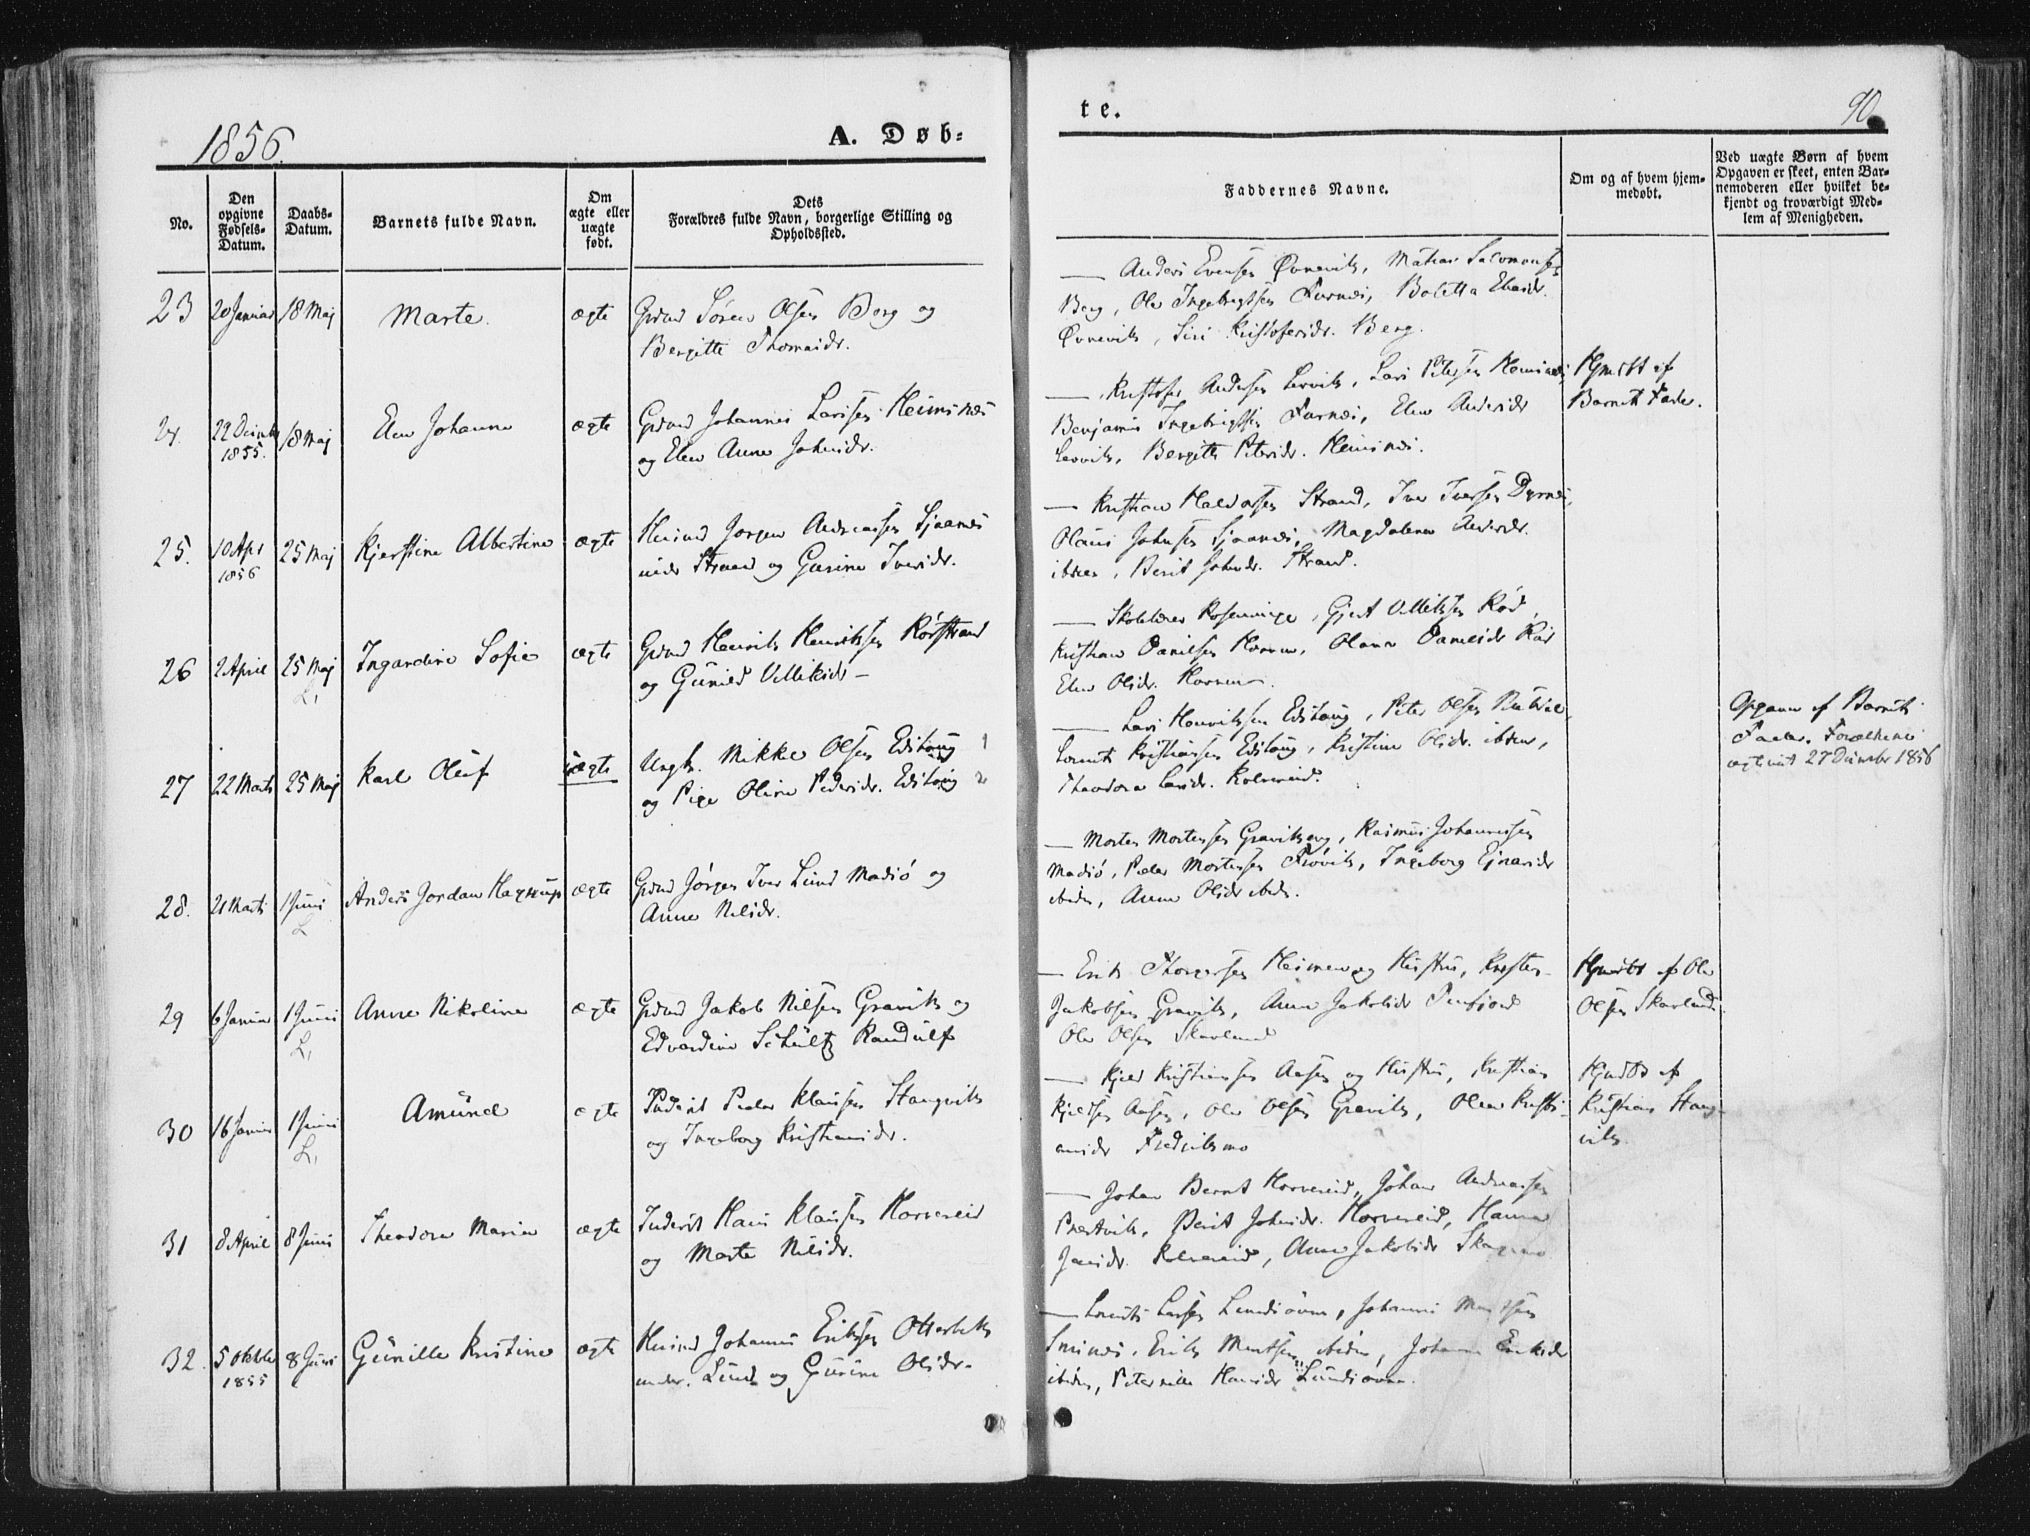 1856.
A. Døb=
te.
90.
No.
Den opgivne Fødsels-Datum.
Daabs-Datum.
Barnets fulde Navn.
Om ægte eller uægte født.
Dets Forældres fulde Navn, borgerlige Stilling og Opholdssted.
Faddernes Navne.
Om og af hvem hjemmedøbt.
Ved uægte Børn af hvem Opgaven er skeet, enten Barnemoderen eller hvilket bekjendt og troværdigt Medlem af Menigheden.
23 20 Januar 18 Maj Marte. ægte Grdmd Søren Olsen Borg og
Bergitte Thomasdr.
— Anders Evensen Øvrevik, Mathias Salomonsen
Berg, Ole Ingebrigtsen Furnæs, Boletta Eliasdr.
Øvrevik, Siri Kristofersdr. Berg.
24. 29 Decemb 1855. 18 Maj Elen Johanna ægte Grdmd Johannes Larsen Heimsnæs
og Elen Anna Johnsdr.
— Kristofer Andersen Lervik, Lars Petersen Heimsnæs,
Benjamin Ingebrigtsen Furnæs, Elen Andersdr
Lervik, Bergitte Petersdr. Heimsnæs.
Hjmdbt af
Barnets Fader.
25. 10 Apr 1856 25 Maj Kjerstine Albertine ægte Huusmd Jørgen Andreassen Sjaanæs
under Strand og Gurine Iversdr.
— Kristian Haldorsen Strand, Iver Iversen Dyrnæs,
Olaus Johnsen Sjaanæs, Magdalena Andersdr.
ibden, Berit Johnsdr. Strand.
26 2 April 25 Maj L, Ingardine Sofie ægte Grdmd Henrik Henriksen Rørstrand
og Gunild Villiksdr —
— Skolelærer Rosenvinge, Gjert Villiksen Rød,
Kristian Danielsen Horven, Olava Danielsdr Rød
Elen Olsdr. Horven.
27 22 Marts 25 Maj Karl Oluf uægte Ungk. Mikkel Olsen Edshaug 1
og Pige Oline Pedersdr. Edshaug 2
— Lars Henriksen Edshaug, Peter Olsen
Kristiansen Edshaug, Kristine Olsdr. ibden,
Theodora Larsdr. Kolvereid.
Opgaven af Barnets
Fader. Forældrene
ægteviet 27 December 1856
28. 21 Marts 1 Juni L Anders Jordan Haxrup ægte Grdmd Jørgen Iver Lund Madsø og
Anne Nilsdr.
— Morten Mortensen Graviksaug, Rasmus Johannesen
Madsø, Peder Mortensen Frøvik, Ingeborg Ejnarsdr
ibiden, Anne Olsdr ibidn.
29 6 Januar 1 Juni L, Anne Nikoline ægte Grdmd Jakob Nilsen Gravik og
Edvardine Schültz Randulf
— Erik Thorgersen Heimen og Hustru, Krister
Jakobsen Gravik, Anna Jakobsdr
Ole Olsen Skarland
Hjmdbt af Ole
Olsen Skarland.
30 16 Januar 1 Juni L, Amünd ægte Inderst Peder Klausen Stangvik
og Ingeborg Kristiansdr.
— Kjeld Kristiansen Aasen og Hustru, Kristian
Kjeldsen Aasen, Ole Olsen Gravik, Olea Kristi-
ansdr Fredriksmo
Hjmdbt af
Kristian Stang-
vik.
31 8 April 8 Juni Theodora Maria ægte Inderst Hans Klausen Horvereid
og Marte Nilsdr.
— Johan Bernt Horvereid, Johan Andreassen
Prestvik, Berit Johnsdr. Horvereid, Hanna
Jensdr. Kolvereid, Anne Jakobsdr
32. 5 Oktober 1855 8 Juni Günille Kristine ægte Huusmd Johannes Eriksen Otterbek
under. Lund og Gurine Olsdr.
— Larsen Lundsøvre, Johannes
Smines, Erik Mortsen ibiden, Johanna Eriksdr
ibiden, Peternille Hansdr Lundsøvre.